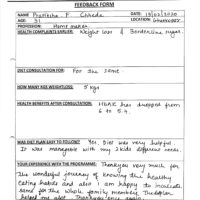 FEEDBACK FORM
NAME: Pratiksha F Chheda
DATE: 18/02/2020
AGE: 31
LOCATION: Ghatkopar
PROFESSION: Home maker
HEALTH COMPLAINTS EARLIER: Weight loss & Borderline sugar
DIET CONSULTATION FOR: For the same
HOW MANY KGS WEIGHTLOSS: 5 kgs
HEALTH BENEFITS AFTER CONSULTATION: HbA1c has dropped from
6 to 5.4.
WAS DIET PLAN EASY TO FOLLOW? Yes, Diet was very helpful.
It was manageable with my 2 kids different needs.
YOUR EXPERIENCE WITH THE PROGRAMME: Thankyou very much for
the wonderful journey of knowing the healthy
Eating habits and also I am happy to inculcate
and for the whole family members. The
helped me alot. Thankyou once again